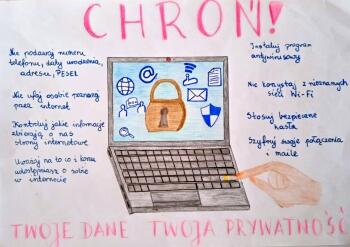 CHROŃ!
Nie podawaj numeru
telefonu, daty urodzenia,
adresu, PESEL
Nie ufaj osobie poznanej
przez internet
Kontroluj jakie informacje
zbierają o nas
strony internetowe
Uważaj na to co i komu
udostępniasz o sobie
w internecie
Instaluj program
antywirusowy
Nie korzystaj z nieznanych
sieci Wi-Fi
Stosuj bezpieczne
hasła
Szyfruj swoje połączenia
i maile
TWOJE DANE TWOJA PRYWATNOŚĆ